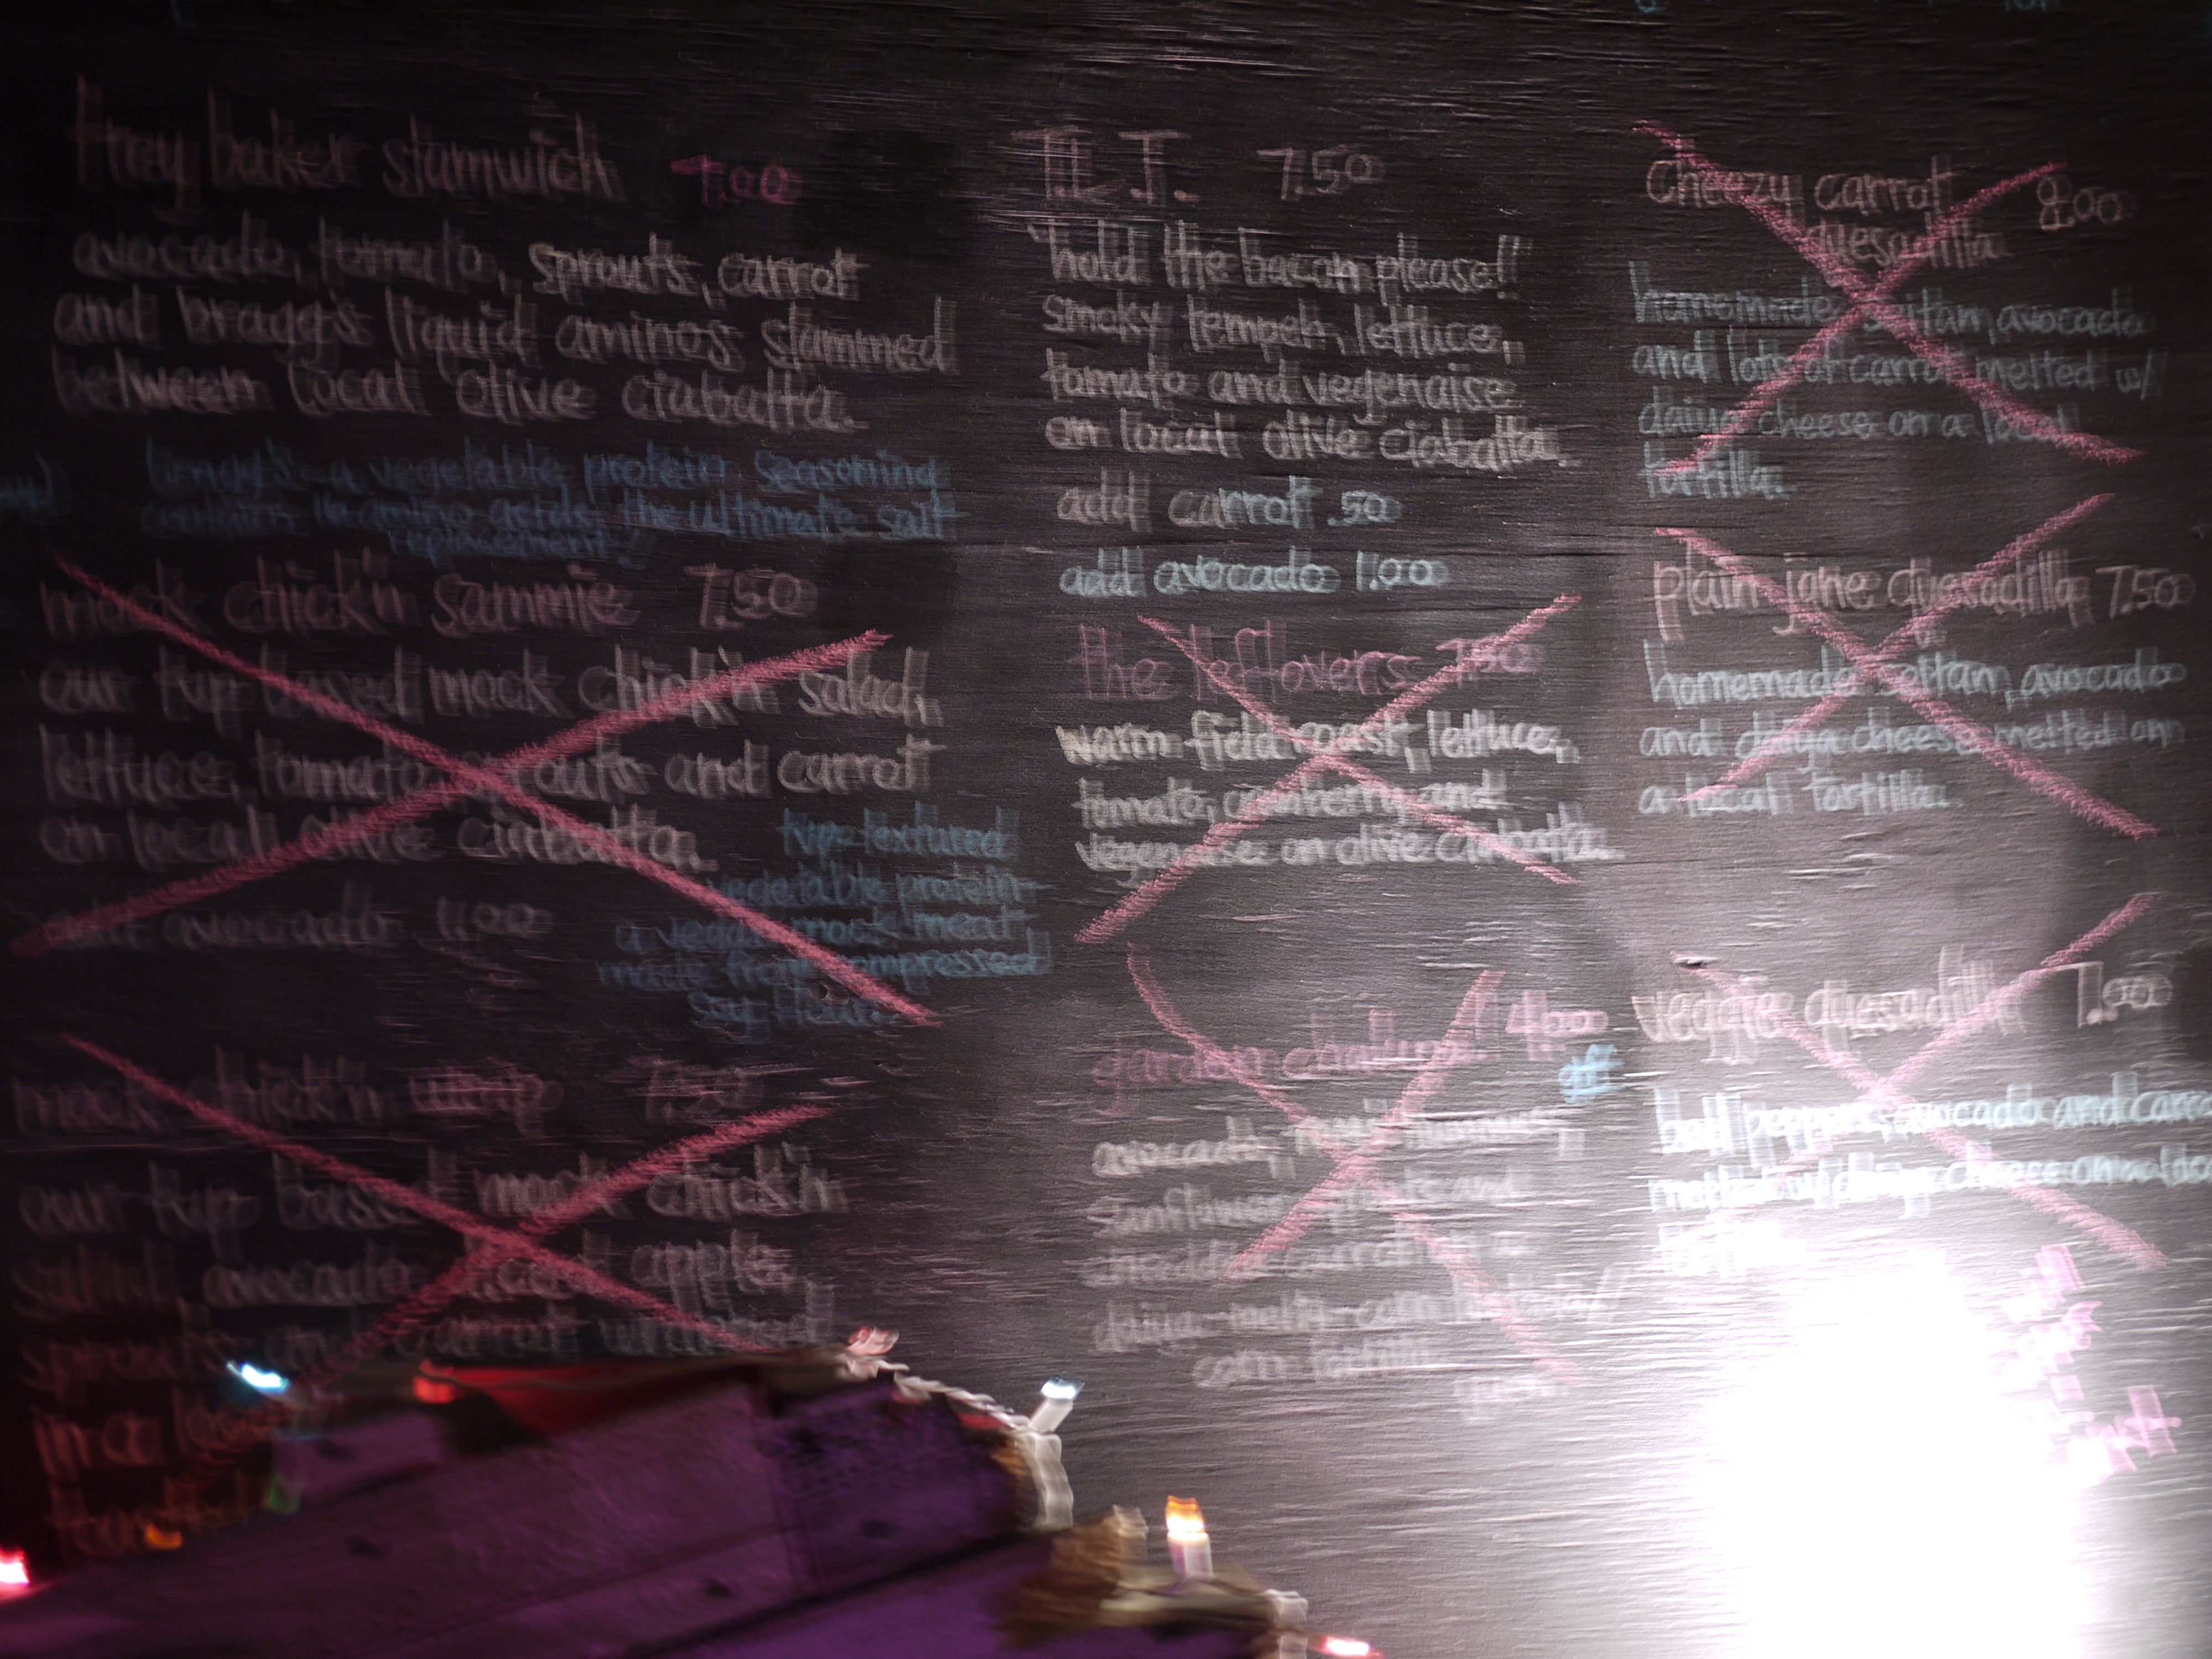 trey baker slamwich
avocado, tomato, sprouts, carrot
and bragg's liquid aminos slammed
between local olive ciabatta.
bragg's - a vegetable protein seasoning
contains 16 amino acids. the ultimate salt
replacement!
mock chick'n sammie 7.50
our tvp based mock chick'n salad,
lettuce, tomato, sprouts and carrot
on local olive ciabatta.
add avocado 1.00
tvp- textured
vegetable protein-
a vegan mock meat
made from compressed
soy flour.
mock chick'n wrap 7.50
our tvp based mock chick'n
salad, avocado, apple,
sprouts and carrot wrapped
in a
T.L.T. 7.50
"hold the bacon please!!
smoky tempeh, lettuce,
tomato and vegenaise
on local olive ciabatta.
add carrot .50
add avocado 1.00
the leftovers 7.50
warm field roast, lettuce,
tomato, cranberry and
vegenaise on olive ciabatta.
garden 4.00
avocado, hummus,
sunflower sprouts and
carrot
daiya
corn tortilla
cheezy carrot 8.00
quesadilla
homemade seitan, avocado
and lots of carrot melted w/
daiya cheese on a local
tortilla.
plain jane quesadilla 7.50
homemade seitan, avocado
and daiya cheese melted on
a local tortilla.
veggie quesadilla 7.00
bell peppers, avocado and
melted w/ daiya cheese on